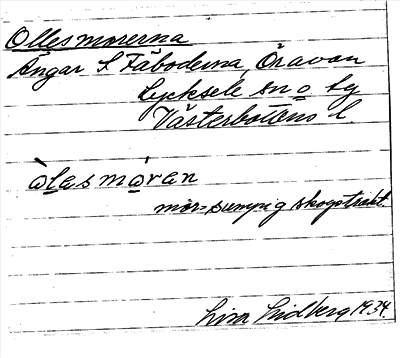 Ollesmorerna
Ängar S. Fäboderna, Öravan
Lycksele sn o. tg
Västerbottens l.
òlesmòrɛn
mor = sumpig skogstrakt.
Lidberg 1934.